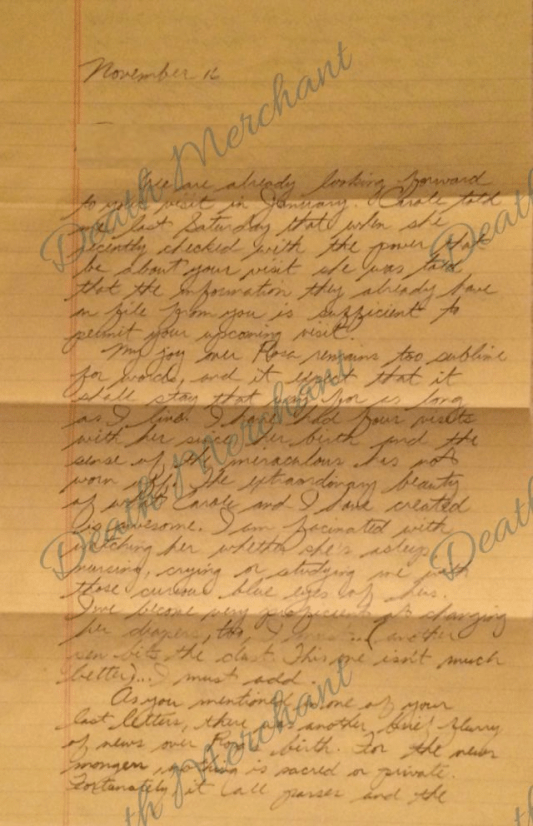 November 16
We are already looking forward
to your visit in January. Carole told
me last Saturday that when she
recently checked with the powers that
be about your visit she was told
that the information they already have
on file from you is sufficient to
permit your upcoming visit.
My joy over Rosa remains too sublime
for words, and it expect that it
shall stay that way for as long
as I live. I have had four visits
with her since her birth and the
sense of the miraculous has not
worn off. The extraordinary beauty
of what Carole and I have created
is awesome. I am facinated with
watching her whether she's asleep
nursing, crying or studying me with
those curious blue eyes of hers.
I've become very proficient at changing
her diapers, too, I must... (another
pen bits the dust. This one isn't much
better)... I must add.
As you mentioned in one of your
last letters, there was another brief flurry
of news over Rosa's birth. For the news
mongers nothing is sacred or private.
Fortunately it all passes and the
Death Merchant
Death Merchant
Death Merchant
Death
Death
Death